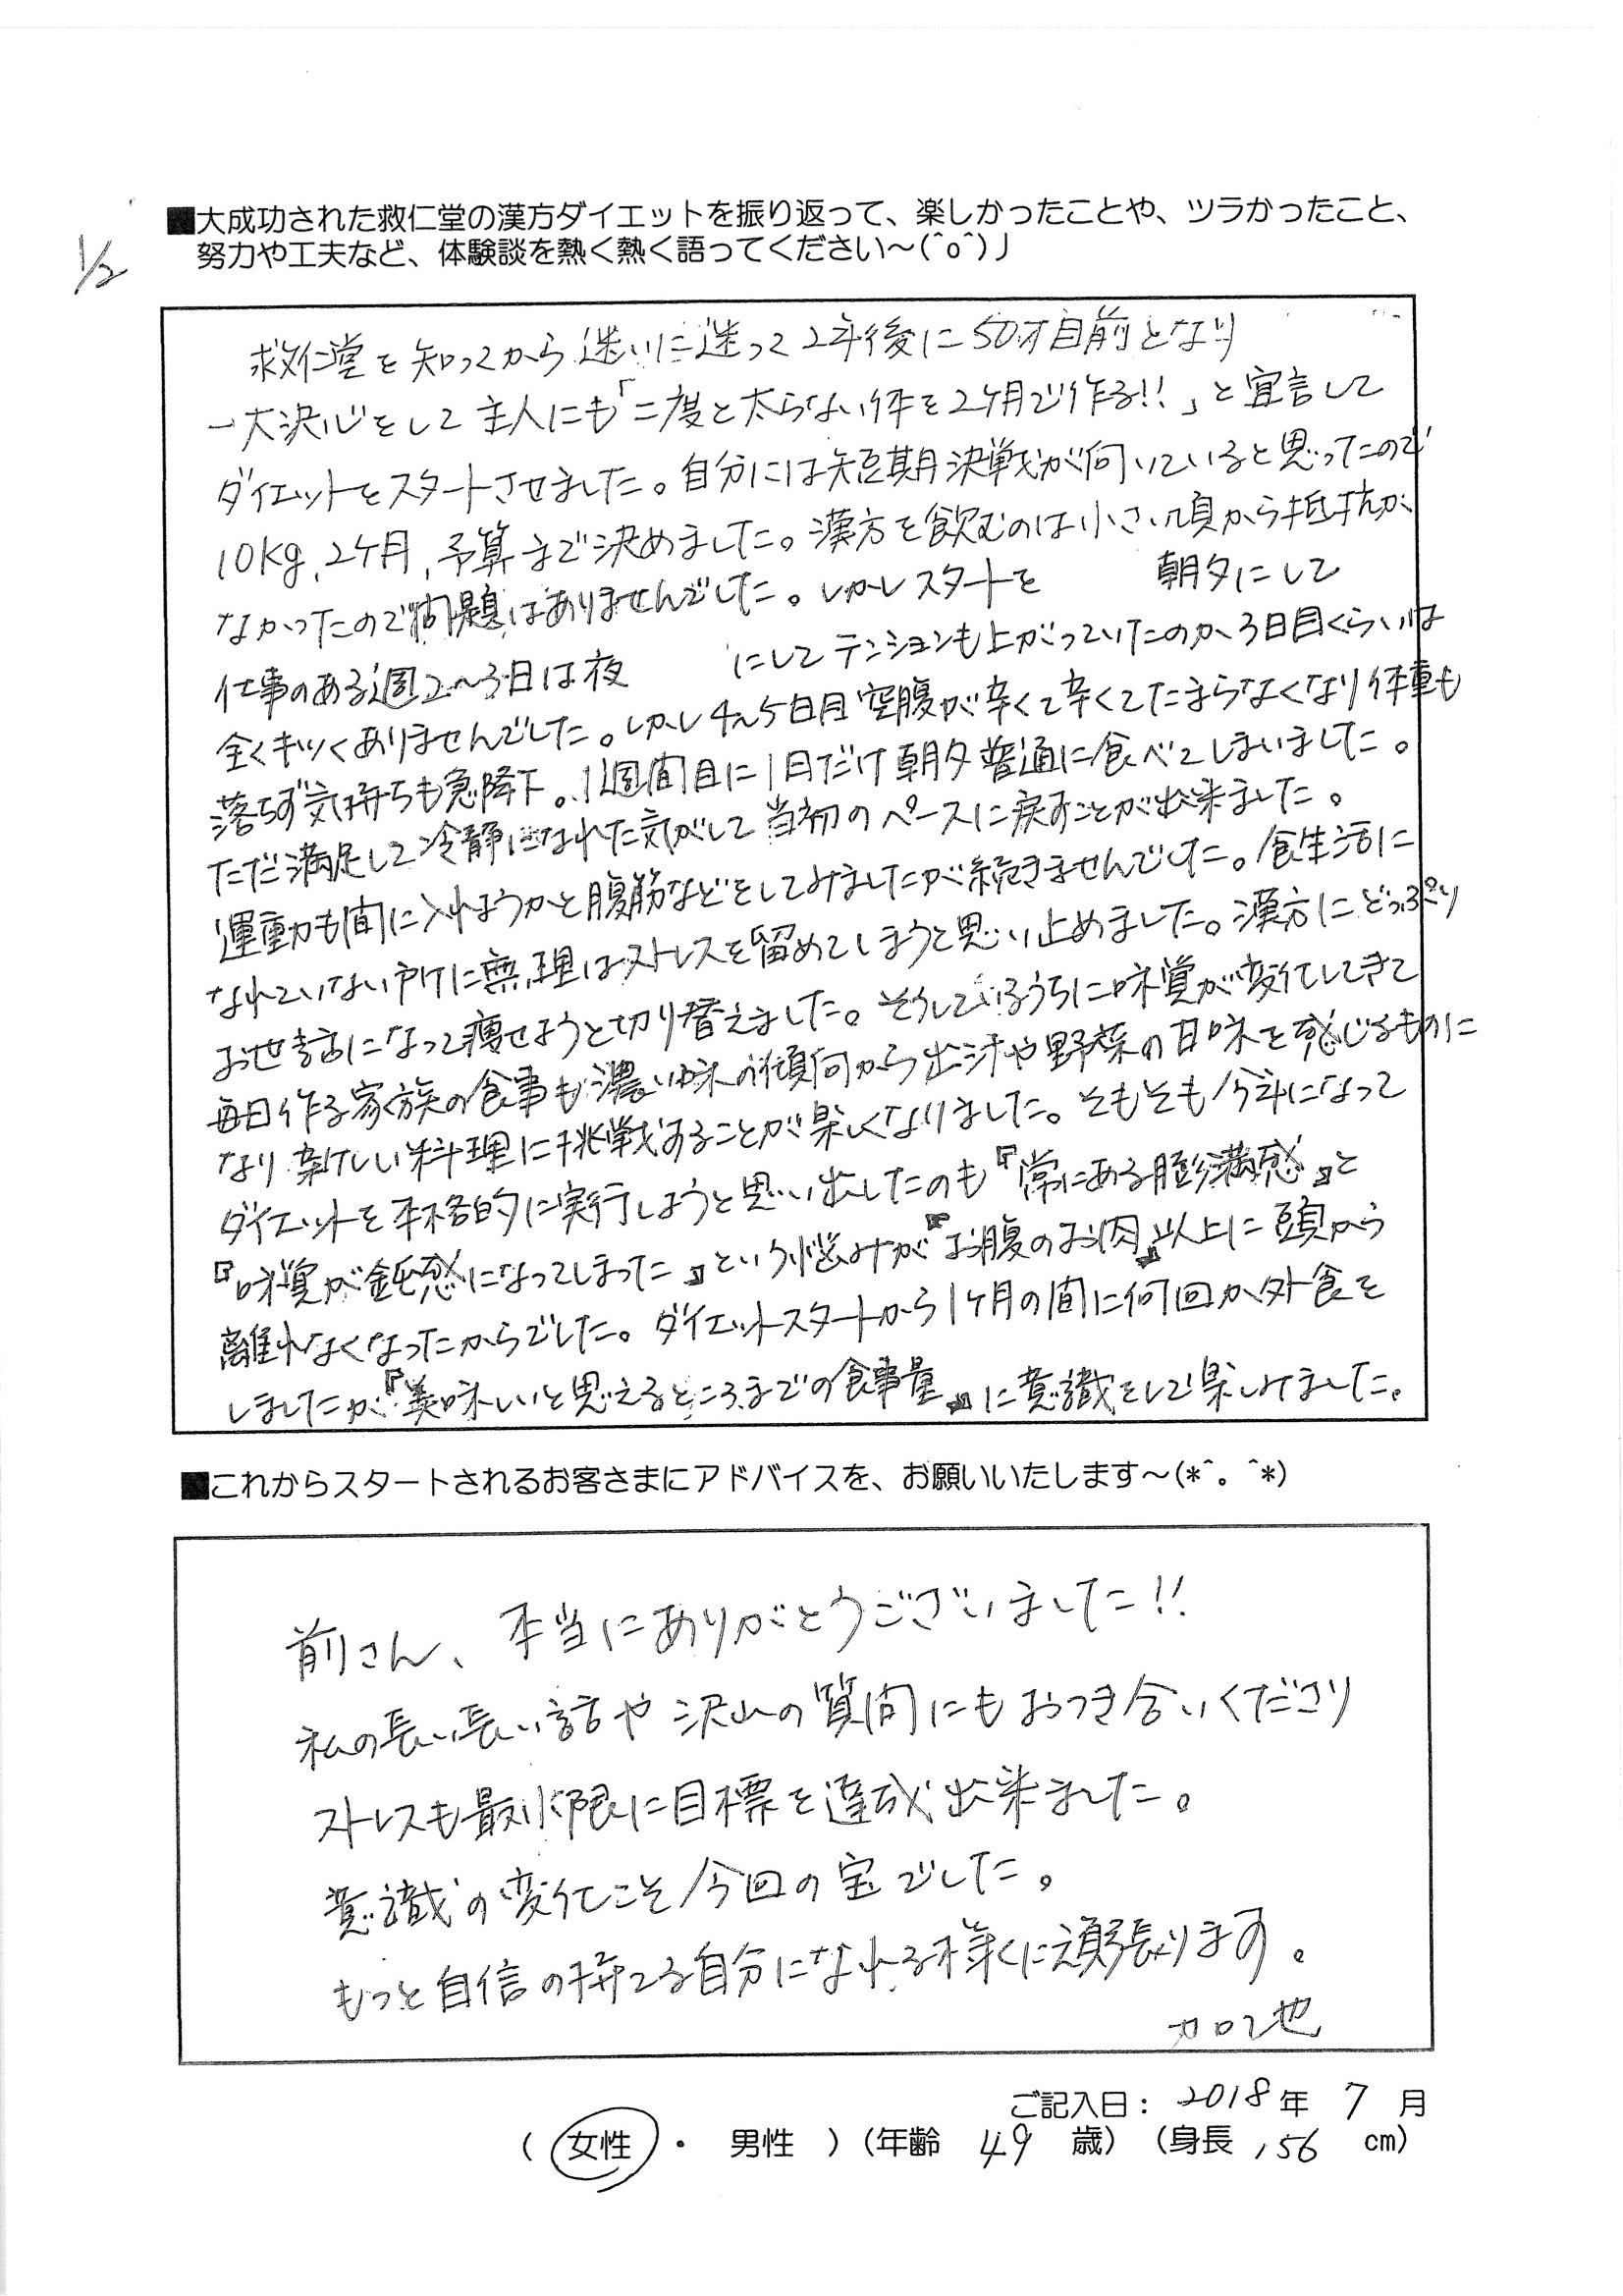 1/2
■大成功された救仁堂の漢方ダイエットを振り返って、楽しかったことや、ツラかったこと、
努力や工夫など、体験談を熱く熱く語ってください～(^o^)丿
救仁堂を知ってから迷いに迷って2年後に50才目前となり
一大決心をして主人にも「二度と太らない体を2ヶ月で作る!!」と宣言して
ダイエットをスタートさせました。自分には短期決戦が向いていると思ったので
10kg、2ヶ月、予算まで決めました。漢方を飲むのは小さい頃から抵抗が
なかったので問題はありませんでした。しかしスタートを 朝夕にして
仕事のある週2〜3日は夜 にしてテンションも上がっていたのか3日目くらいは
全くキツくありませんでした。しかし4〜5日目空腹が辛くて辛くてたまらなくなり体重も
落ちず気持ちも急降下。1週間目に1日だけ朝夕普通に食べてしまいました。
ただ満足して冷静になれた気がして当初のペースに戻すことが出来ました。
運動も間に入れようかと腹筋などをしてみましたが続きませんでした。食生活に
なれていない時に無理はストレスを留めてしまうと思い止めました。漢方にどっぷり
お世話になって痩せようと切り替えました。そうしているうちに味覚が変化してきて
毎日作る家族の食事も濃い味の傾向から出汁や野菜の甘味を感じるものに
なり新しい料理に挑戦することが楽しくなりました。そもそも今年になって
ダイエットを本格的に実行しようと思い出したのも『常にある膨満感』と
『味覚が鈍感になってしまった』という悩みが『お腹のお肉』以上に頭から
離れなくなったからでした。ダイエットスタートから1ヶ月の間に何回か外食を
しましたが『美味しいと思えるところまでの食事量』に意識をして楽しみました。
■これからスタートされるお客さまにアドバイスを、お願いいたします～(*^。^*)
前さん、本当にありがとうございました!!
私の長い長い話や沢山の質問にもおつき合いくださり
ストレスも最小限に目標を達成出来ました。
意識の変化こそ今回の宝でした。
もっと自信の持てる自分になれる様に頑張ります。
ご記入日： 2018年 7 月
( 女性 ・ 男性 ) (年齢 49 歳) (身長 156 cm)